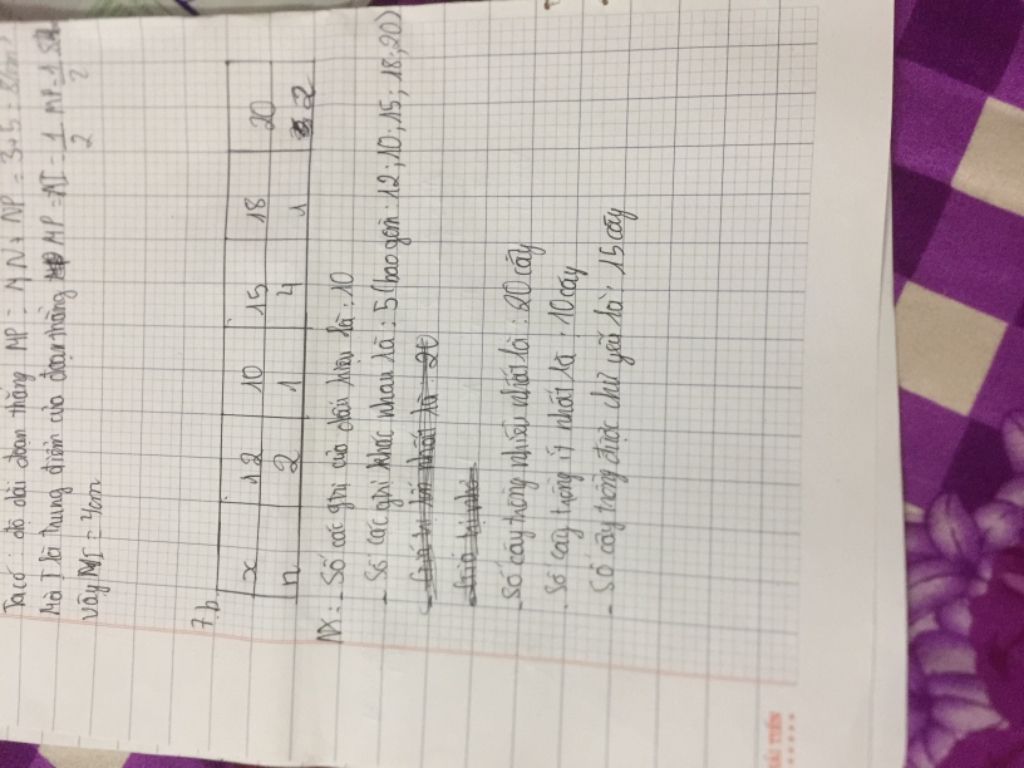 Ta có: độ dài đoạn thẳng MP = MN + NP = 3+5 = 8(cm)
Mà I là trung điểm của đoạn thẳng MP = MI = 1/2 MP = 1/2 .8
Vậy MI = 4cm
7.b
x 12 10 15 18 20
n 2 1 4 1 2
NX: - Số các giá của dấu hiệu là: 10
- Số các giá khác nhau là: 5 (bao gồm: 12; 10; 15; 18; 20)
- Số cây trồng nhiều nhất là: 20 cây
- Số cây trồng ít nhất là: 10 cây
- Số cây trồng được chủ yếu là: 15 cây
HẢI TIẾN